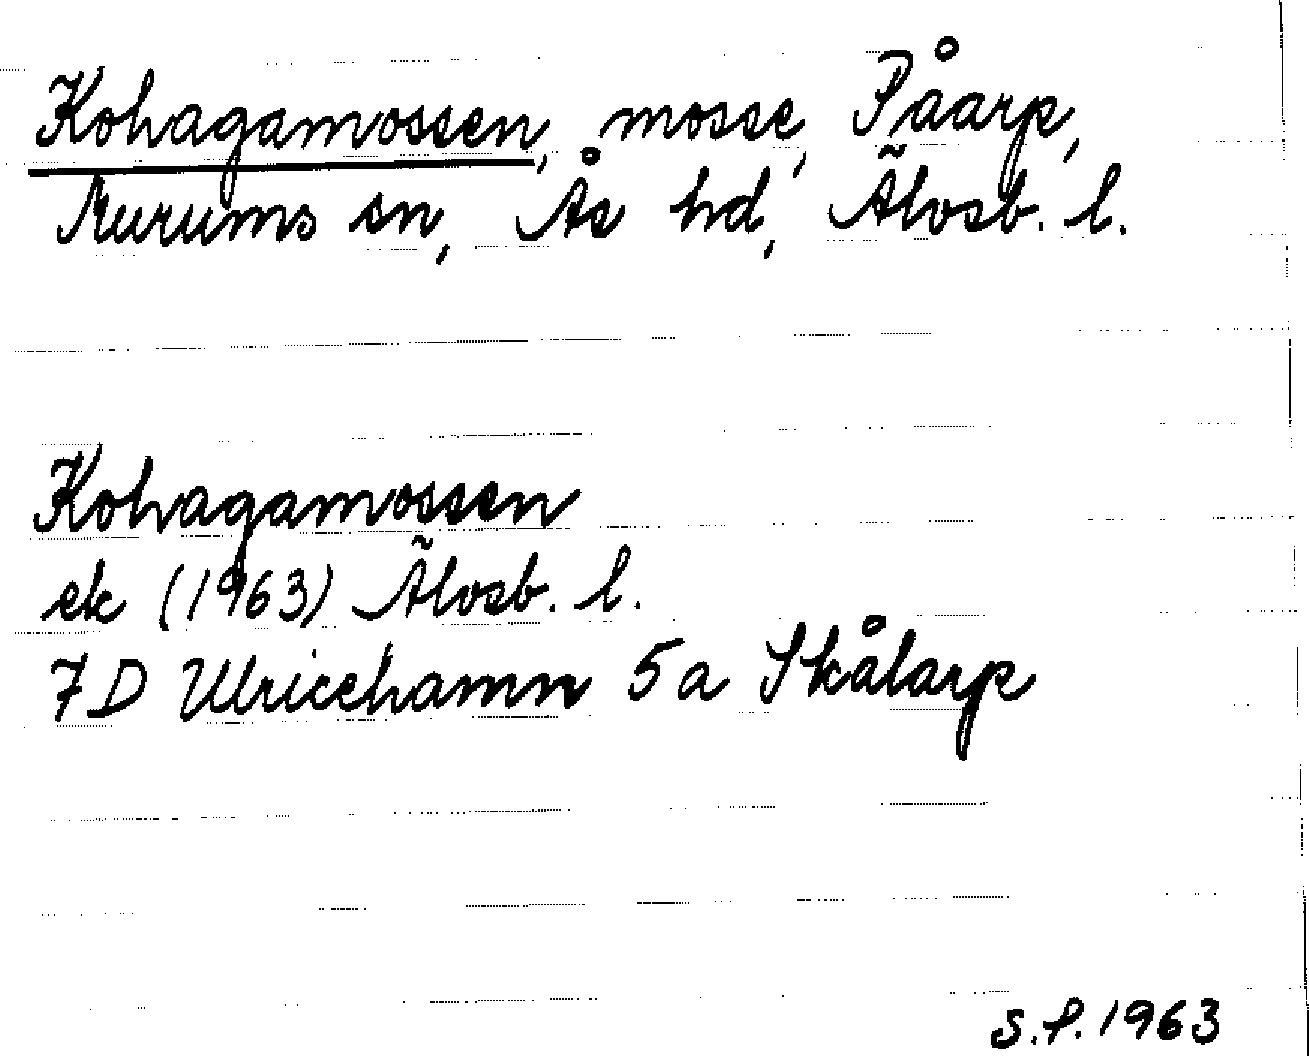 Kohagamossen, mosse, Påarp,
Murums sn, Ås hd, Älvsb. l.
Kohagamossen
ek (1963) Älvsb. l.
7D Ulricehamn 5a Skålarp
S.P. 1963